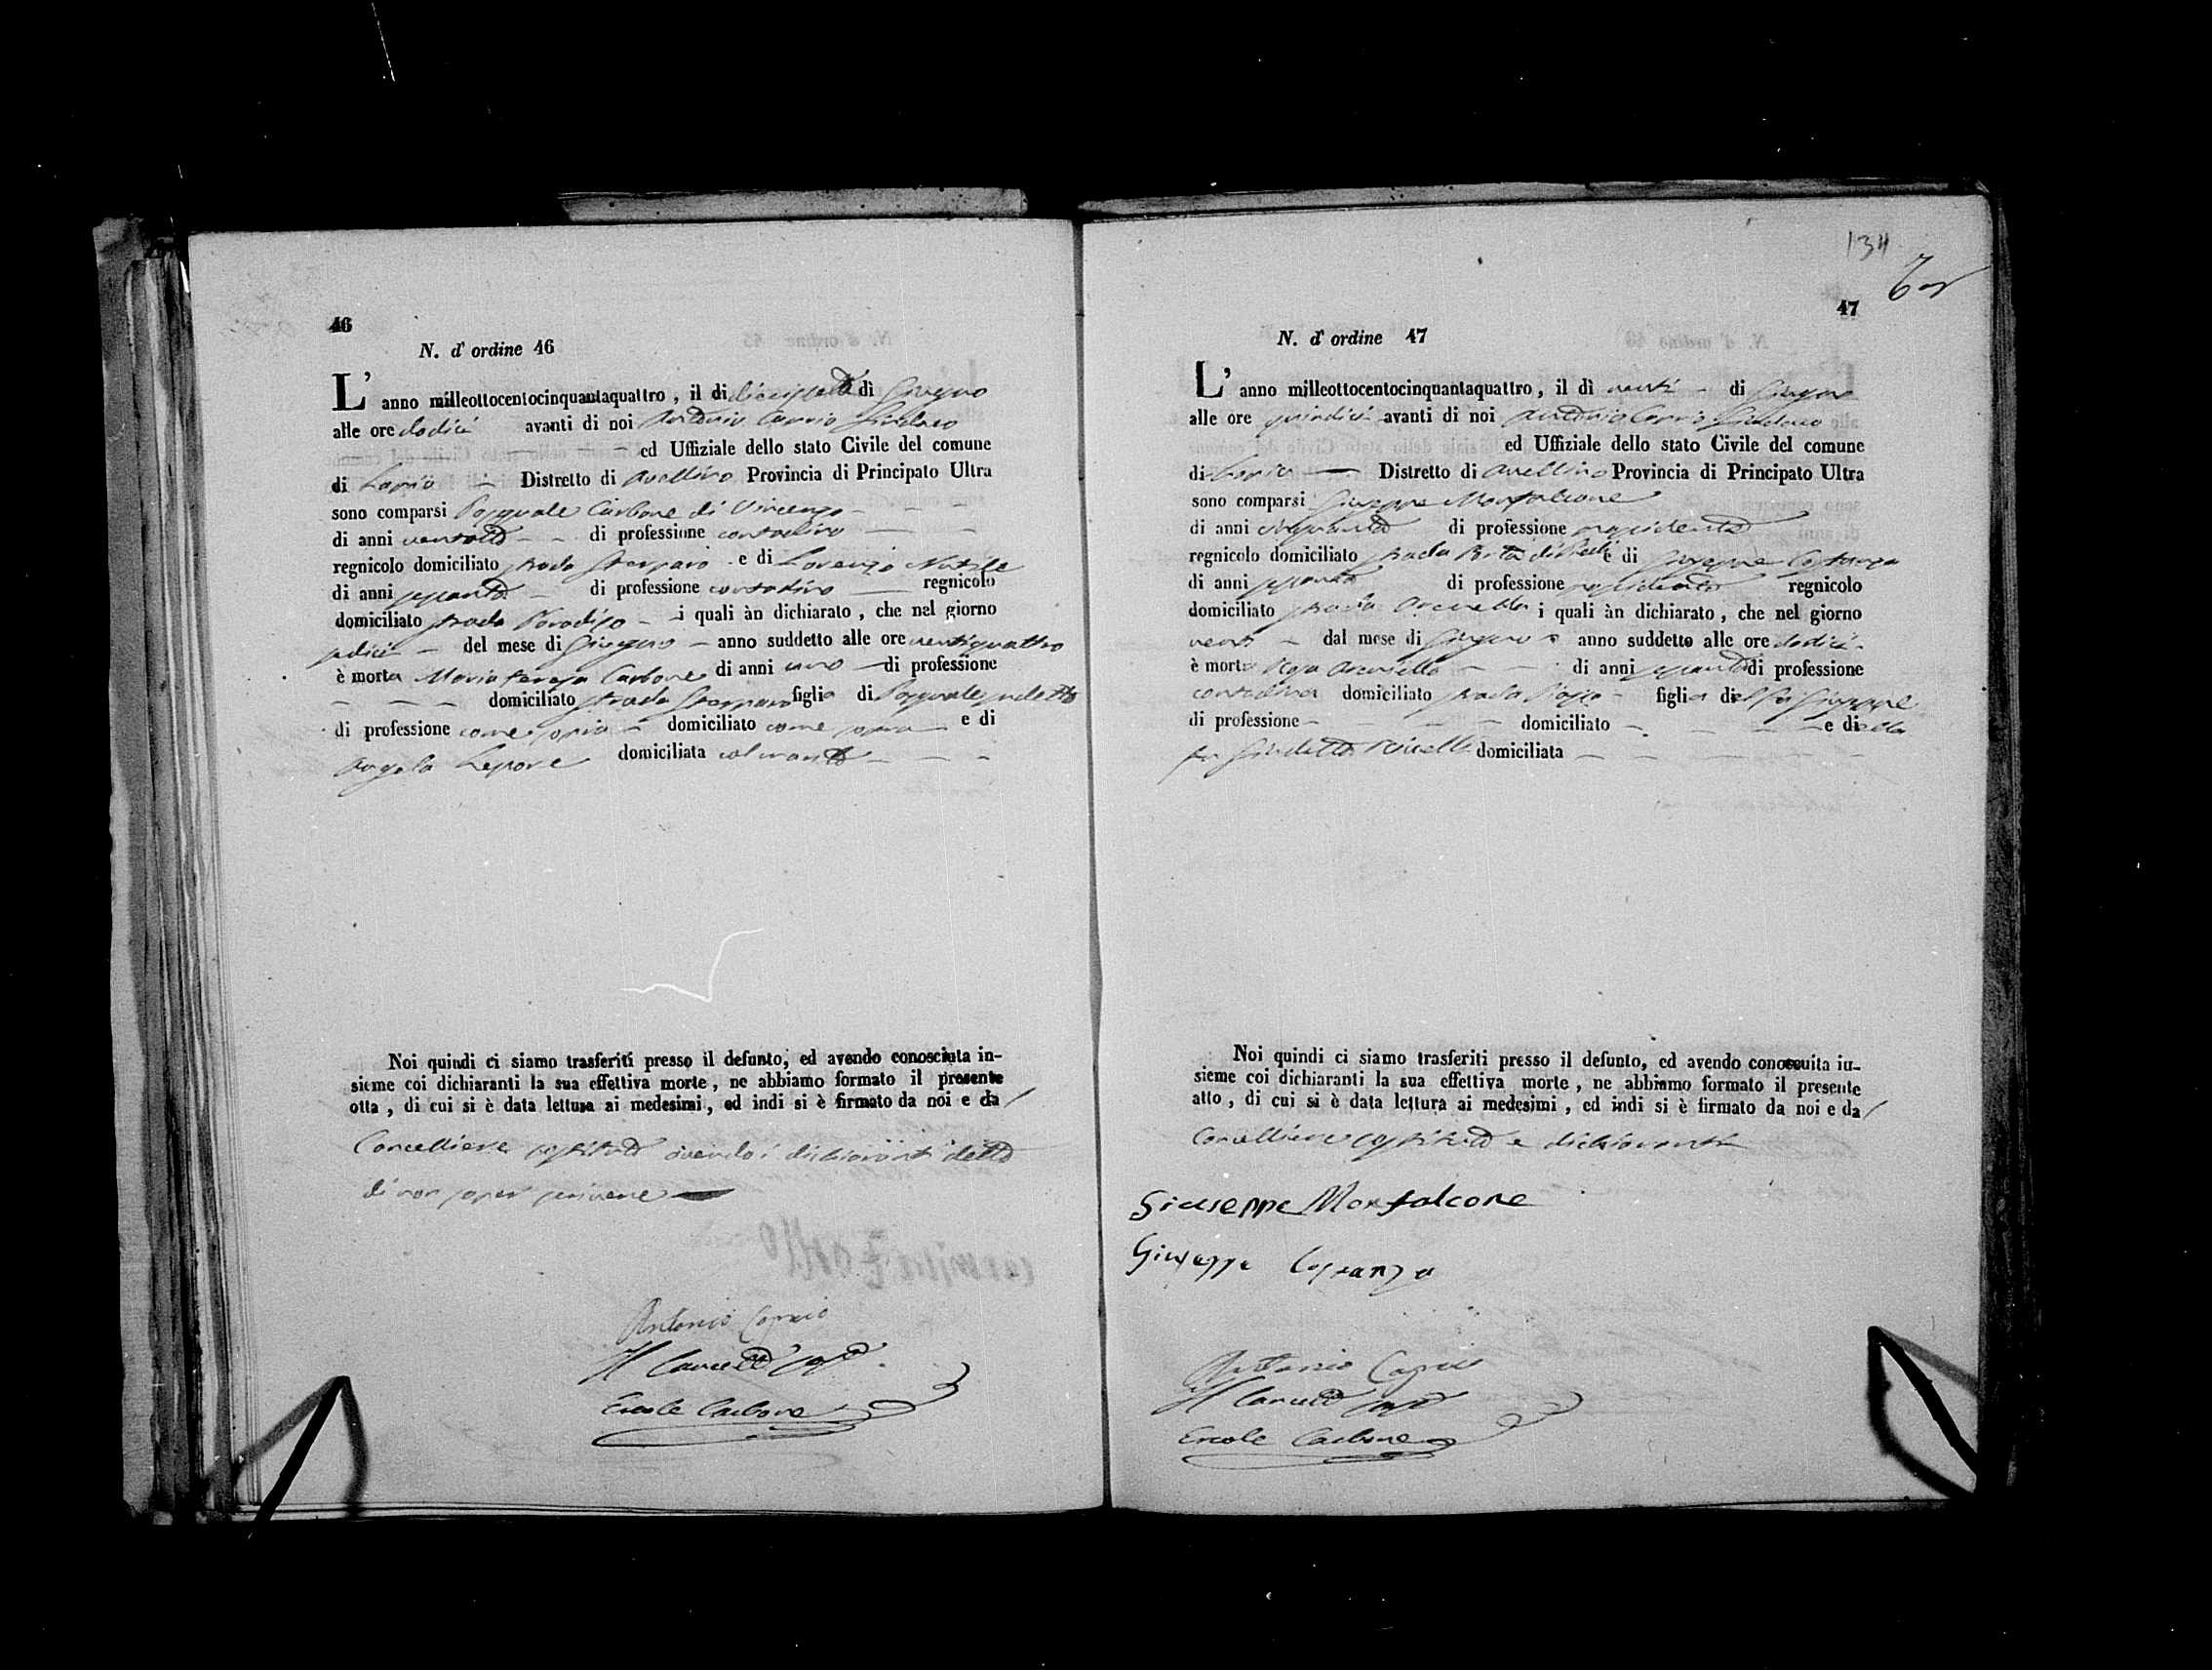 46
N. d' ordine 46
L' anno milleottocentocinquantaquattro, il di diecissette di Giugno
alle ore dodici avanti di noi Antonio Caprio Sindaco
ed Uffiziale dello stato Civile del comune
di Lapio — Distretto di Avellino Provincia di Principato Ultra
sono comparsi Pasquale Carbone di Vincenzo
di anni ventotto di professione contadino
regnicolo domiciliato strada e di Lorenzo Natale
di anni sessanta di professione contadino regnicolo
domiciliato strada Paradiso i quali àn dichiarato, che nel giorno
sedici del mese di Giugno anno suddetto alle ore ventiquattro
è morta Maria Teresa Carbone di anni uno di professione
domiciliato strada figlia di Pasquale sudetto
di professione come sopra domiciliato come sopra e di
Angela Lepore domiciliata col marito
Noi quindi ci siamo trasferiti presso il defunto, ed avendo conosciuta in-
sieme coi dichiaranti la sua effettiva morte, ne abbiamo formato il presente
otta, di cui si è data lettura ai medesimi, ed indi si è firmato da noi e da
Cancelliere sostituto avendo i dichiaranti detto
di non saper scrivere
Antonio Caprio
Il Cancell.e sost.o
Ercole Carbone
134
47
N. d' ordine 47
L' anno milleottocentocinquantaquattro, il dì venti di Giugno
alle ore quindici avanti di noi Antonio Caprio Sindaco
ed Uffiziale dello stato Civile del comune
di Lapio — Distretto di Avellino Provincia di Principato Ultra
sono comparsi Giuseppe Monfalcone
di anni cinquanta di professione
regnicolo domiciliato strada Porta e di Giuseppe Costanza
di anni sessanta di professione regnicolo
domiciliato strada i quali àn dichiarato, che nel giorno
venti dal mese di Giugno anno suddetto alle ore dodici
è morta Rosa Arciuolo di anni sessanta di professione
contadina domiciliato strada figlia del fu Giuseppe
di professione domiciliato e di della
fu Giuditta domiciliata
Noi quindi ci siamo trasferiti presso il defunto, ed avendo conosciuta in-
sieme coi dichiaranti la sua effettiva morte, ne abbiamo formato il presente
atto, di cui si è data lettura ai medesimi, ed indi si è firmato da noi e da
Cancelliere sostituto e dichiaranti
Giuseppe Monfalcone
Giuseppe Costanza
Antonio Caprio
Il Cancell.e sost.o
Ercole Carbone